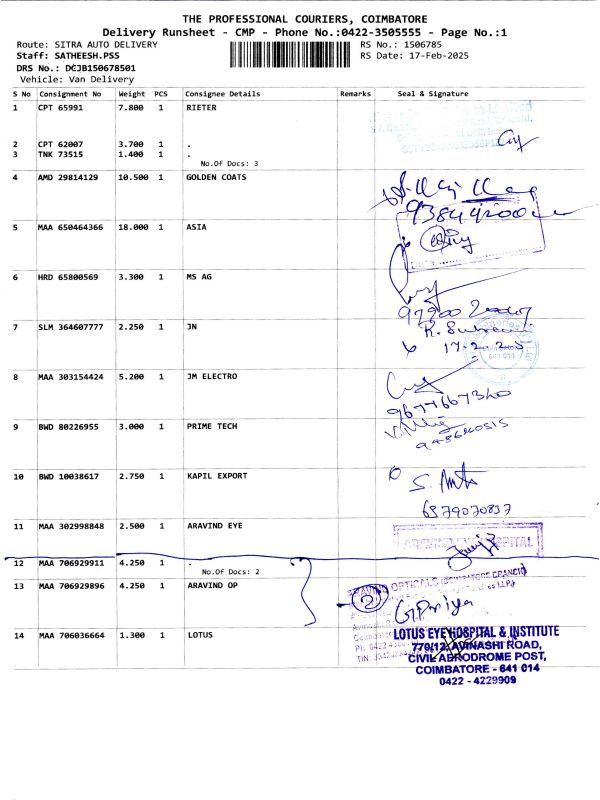 THE PROFESSIONAL COURIERS, COIMBATORE
Delivery Runsheet - CMP - Phone No.:0422-3505555 - Page No.:1
Route: SITRA AUTO DELIVERY
RS No.: 1506785
Staff: SATHEESH.PSS
RS Date: 17-Feb-2025
DRS No.: DCJB150678501
Vehicle: Van Delivery
S No Consignment No Weight PCS Consignee Details Remarks Seal & Signature
1 CPT 65991 7.800 1 RIETER
2 CPT 62007 3.700 1 .
3 TNK 73515 1.400 1 .
No.Of Docs: 3
4 AMD 29814129 10.500 1 GOLDEN COATS
5 MAA 650464366 18.000 1 ASIA
6 HRD 65800569 3.300 1 MS AG
7 SLM 364607777 2.250 1 JN
17.2.
641 014
8 MAA 303154424 5.200 1 JM ELECTRO
9677667340
9 BWD 80226955 3.000 1 PRIME TECH
10 BWD 10038617 2.750 1 KAPIL EXPORT
6379070837
11 MAA 302998848 2.500 1 ARAVIND EYE
ARAVIND HOSPITAL
12 MAA 706929911 4.250 1 .
No.Of Docs: 2
13 MAA 706929896 4.250 1 ARAVIND OP
2
G.Priya
14 MAA 706036664 1.300 1 LOTUS
LOTUS EYE HOSPITAL & INSTITUTE
770/12, AVINASHI ROAD,
CIVIL AERODROME POST,
COIMBATORE - 641 014
0422 - 4229909